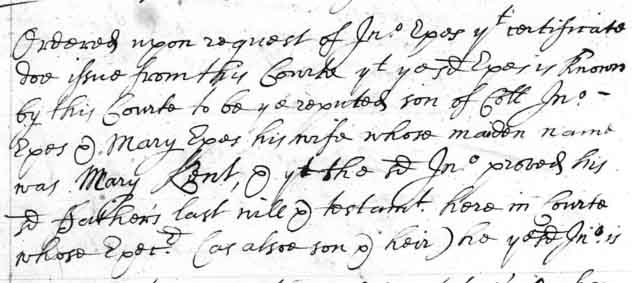 Ordered upon request of Jn.º Epes yt certificate
doe issue from this Courte yt ye sd Epes is Known
by this Courte to be ye reputed son of Coll Jn.º -
Epes & Mary Epes his wife whose maiden name
was Mary Kent, & yt the sd Jn.º proved his
sd Father's last will & testamt. here in Courte
whose Execr. (as alsoe son & heir) he ye sd Jn.º is